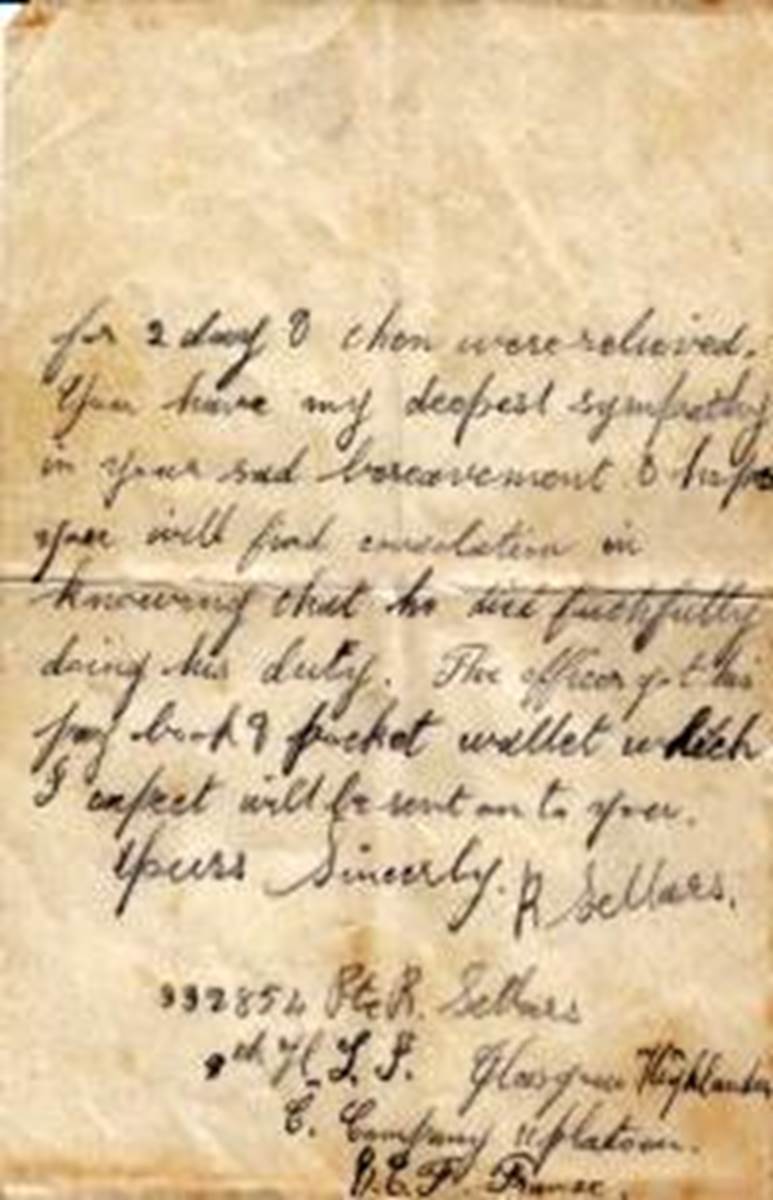 for 2 days & then were relieved.
You have my deepest sympathy
in your sad bereavement & hope
you will find consolation in
knowing that he died faithfully
doing his duty. The officer got his
pay book & pocket wallet which
I expect will be sent on to you.
Yours Sincerly. R Sellars.
332854 Pte R. Sellars
9th H. L. I. Glasgow Highlanders
C. Company 11 platoon.
B.E.F. France